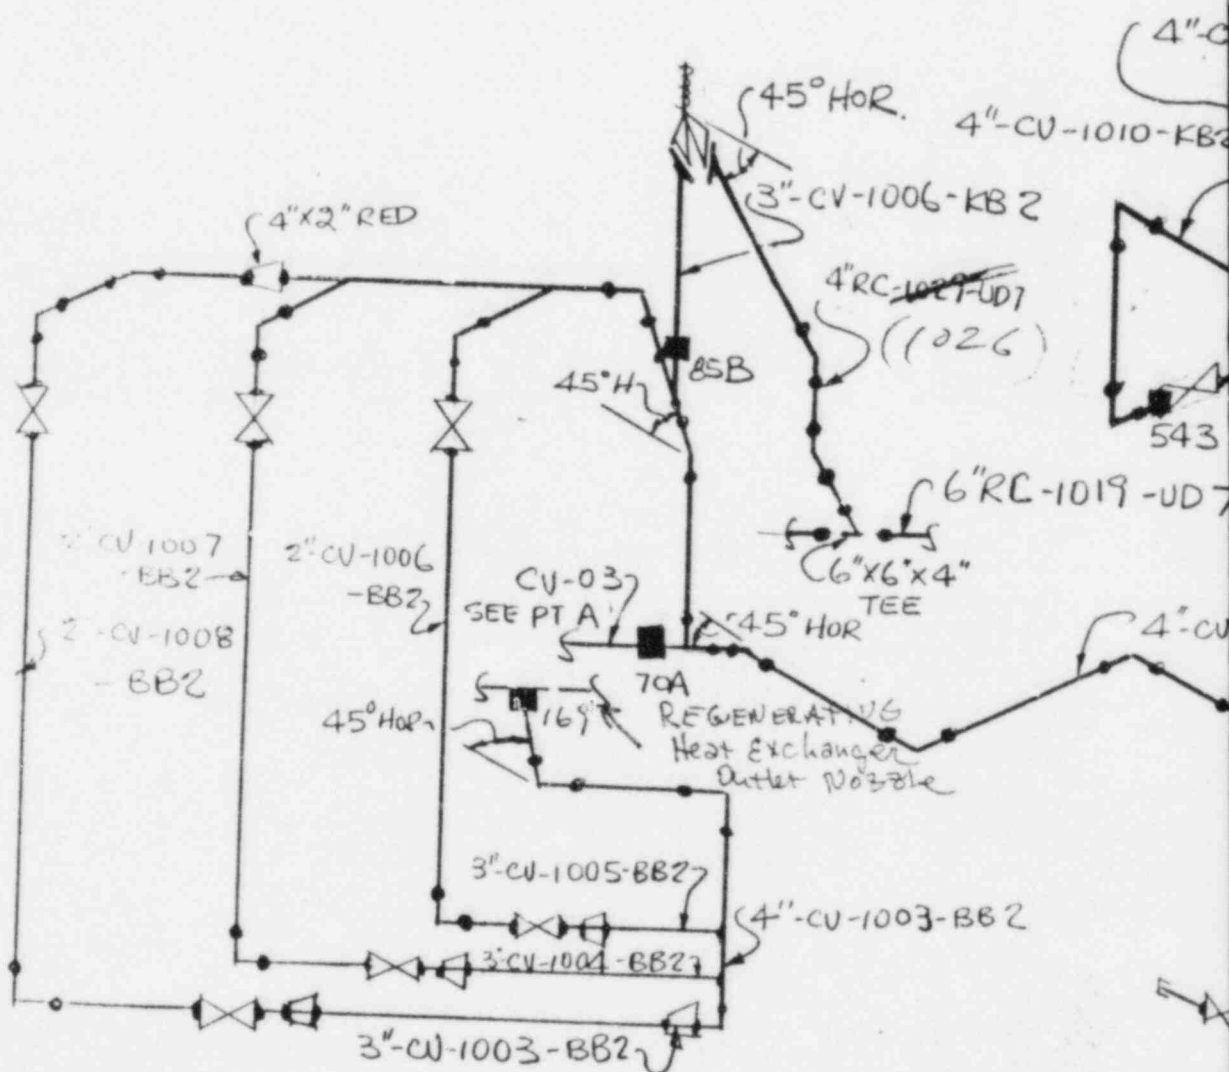 4"-C
45° HOR.
4"-CV-1010-KB2
3"-CV-1006-KB2
4"X2" RED
4"RC-1029-UD7
(1026)
85B
45° H
543
6"RC-1019-UD7
2"CV-1007
-BB2
2"CV-1006
-BB2
CV-03
SEE PT A
6"X6"X4"
TEE
2"-CV-1008
-BB2
45° HOR
4"-CV
70A
45° HOR
169
REGENERATIVE
Heat Exchanger
Outlet Nozzle
3"-CV-1005-BB2
4"-CV-1003-BB2
3"CV-1004-BB2
3"-CV-1003-BB2